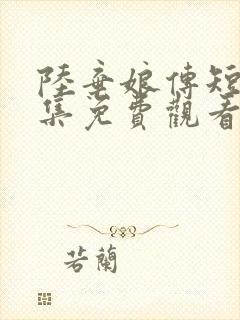 陸棄娘傳短
集免費觀看
若蘭